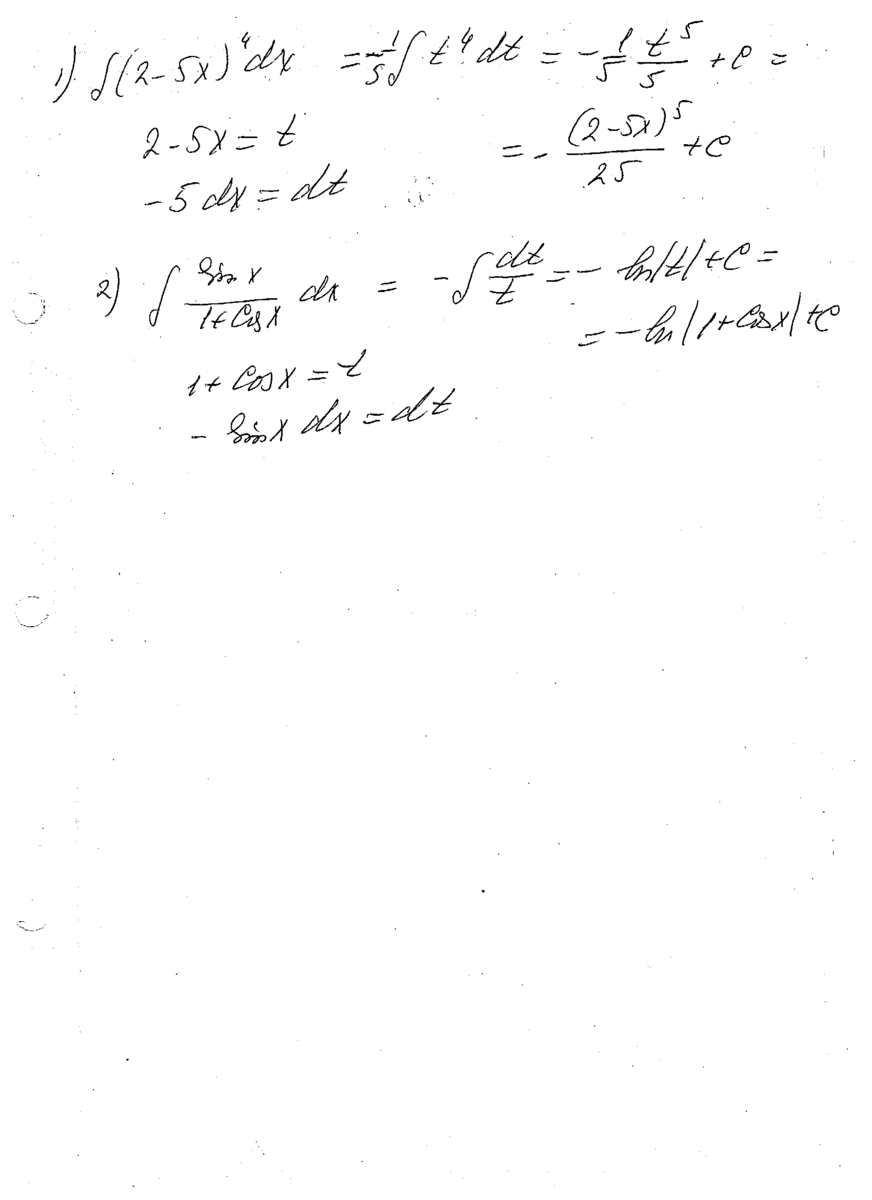 1) ∫(2-5x)^4 dx = -1/5 ∫ t^4 dt = - 1/5 t^5/5 + C =
2-5x = t
= - (2-5x)^5/25 + C
-5 dx = dt
2) ∫ sin x/(1+cos x) dx = -∫ dt/t = - ln|t| + C =
= - ln|1+cos x| + C
1 + cos x = t
- sin x dx = dt